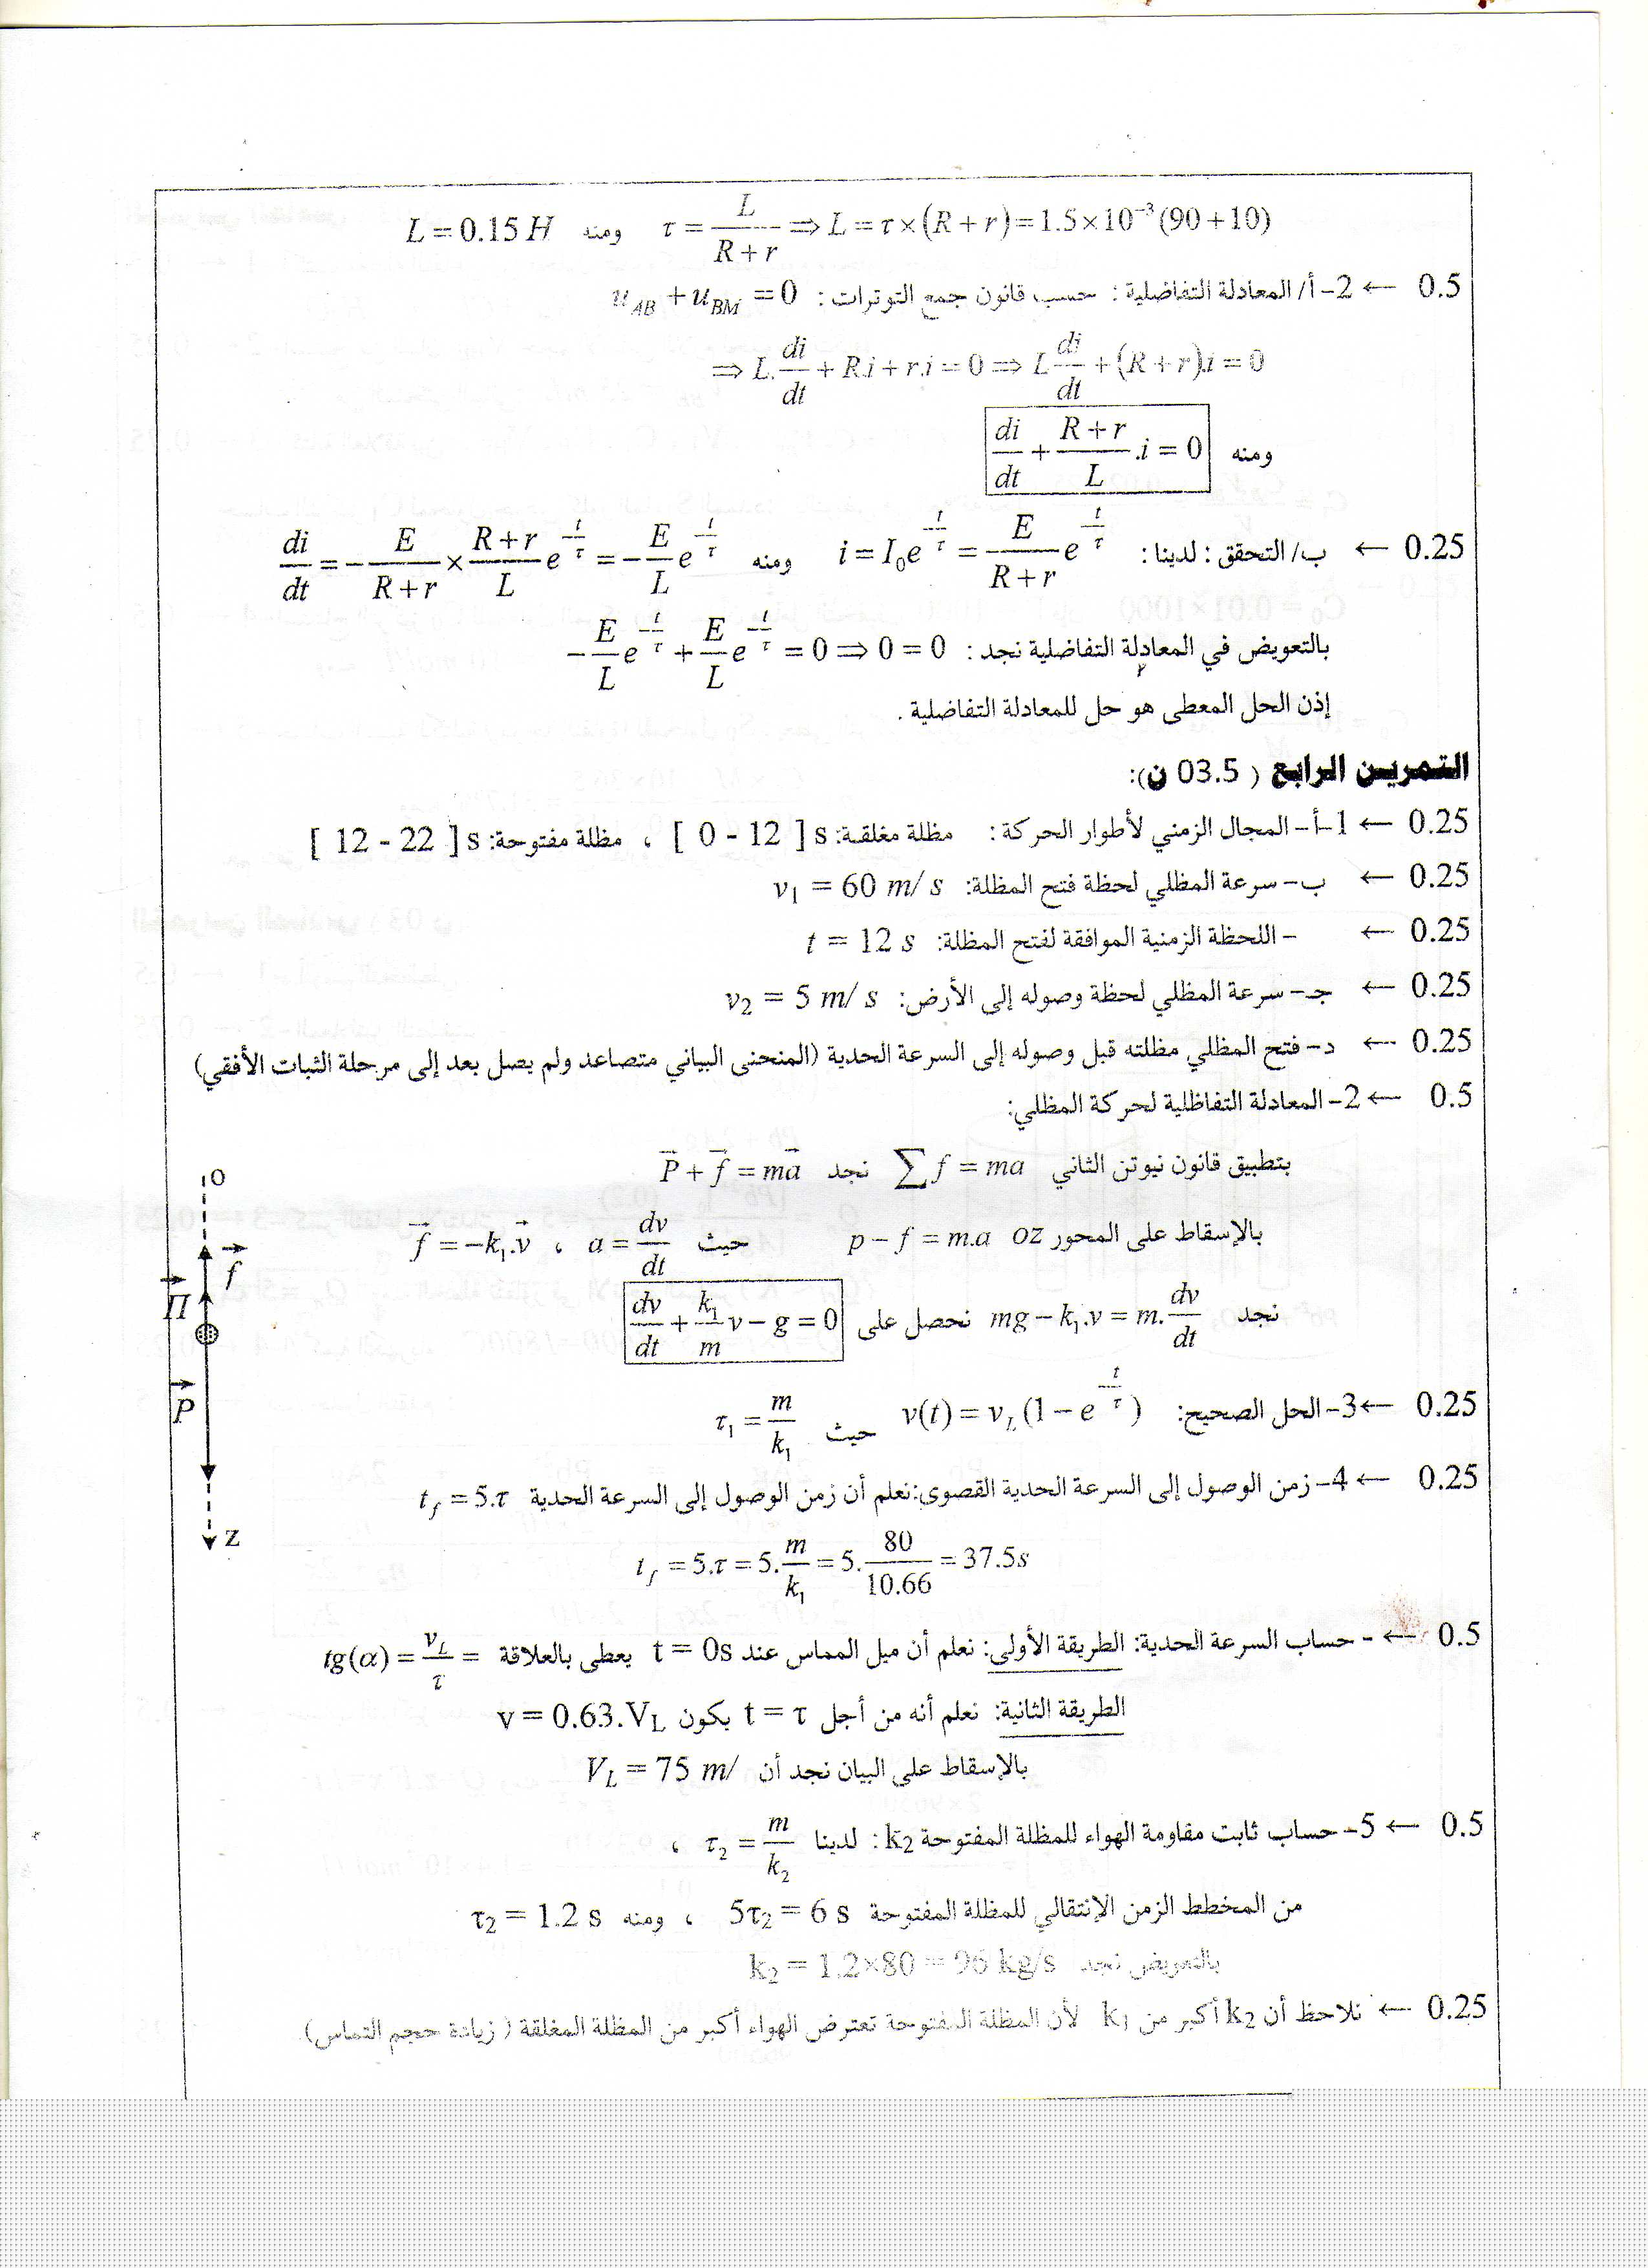 τ = L/(R+r) ⇒ L = τ×(R+r) = 1.5×10⁻³(90+10) ومنه L = 0.15 H
0.5 ← 2- أ/ المعادلة التفاضلية : حسب قانون جمع التوترات : u_AB + u_BM = 0
⇒ L.di/dt + R.i + r.i = 0 ⇒ L di/dt + (R+r).i = 0
ومنه di/dt + (R+r)/L .i = 0
0.25 ← ب/ التحقق : لدينا : i = I₀e^(-t/τ) = E/(R+r) e^(-t/τ) ومنه di/dt = -E/(R+r) × (R+r)/L e^(-t/τ) = -E/L e^(-t/τ)
بالتعويض في المعادلة التفاضلية نجد : -E/L e^(-t/τ) + E/L e^(-t/τ) = 0 ⇒ 0 = 0
إذن الحل المعطى هو حل للمعادلة التفاضلية .
التمريـن الرابع ( 03.5 ن):
0.25 ← 1-أ- المجال الزمني لأطوار الحركة : مظلة مغلقة: s[ 0 - 12 ] ، مظلة مفتوحة: s[ 12 - 22 ]
0.25 ← ب- سرعة المظلي لحظة فتح المظلة: v₁ = 60 m/ s
0.25 ← - اللحظة الزمنية الموافقة لفتح المظلة: t = 12 s
0.25 ← جـ- سرعة المظلي لحظة وصوله إلى الأرض: v₂ = 5 m/ s
0.25 ← د- فتح المظلي مظلته قبل وصوله إلى السرعة الحدية (المنحنى البياني متصاعد ولم يصل بعد إلى مرحلة الثبات الأفقي)
0.5 ← 2- المعادلة التفاظلية لحركة المظلي:
بتطبيق قانون نيوتن الثاني ∑f = ma نجد P⃗ + f⃗ = ma⃗
بالإسقاط على المحور oz p - f = m.a حيث a = dv/dt ، f⃗ = -k₁.v⃗
نجد mg - k₁.v = m.dv/dt نحصل على dv/dt + k₁/m v - g = 0
o
f⃗
Π⃗
P⃗
z
0.25 ← 3- الحل الصحيح: v(t) = v_L(1 - e^(-t/τ)) حيث τ₁ = m/k₁
0.25 ← 4- زمن الوصول إلى السرعة الحدية القصوى:نعلم أن زمن الوصول إلى السرعة الحدية t_f = 5.τ
t_f = 5.τ = 5.m/k₁ = 5.80/10.66 = 37.5s
0.5 ← - حساب السرعة الحدية: الطريقة الأولى: نعلم أن ميل المماس عند t = 0s يعطى بالعلاقة = tg(α) = v_L/τ
الطريقة الثانية: نعلم أنه من أجل t = τ يكون v = 0.63.V_L
بالإسقاط على البيان نجد أن V_L = 75 m/
0.5 ← 5- حساب ثابت مقاومة الهواء للمظلة المفتوحة k₂ : لدينا τ₂ = m/k₂ ،
من المخطط الزمن الإنتقالي للمظلة المفتوحة 5τ₂ = 6 s ، ومنه τ₂ = 1.2 s
بالتعويض نجد k₂ = 1.2×80 = 96 kg/s
0.25 ← نلاحظ أن k₂ أكبر من k₁ لأن المظلة المفتوحة تعترض الهواء أكبر من المظلة المغلقة ( زيادة حجم التماس).